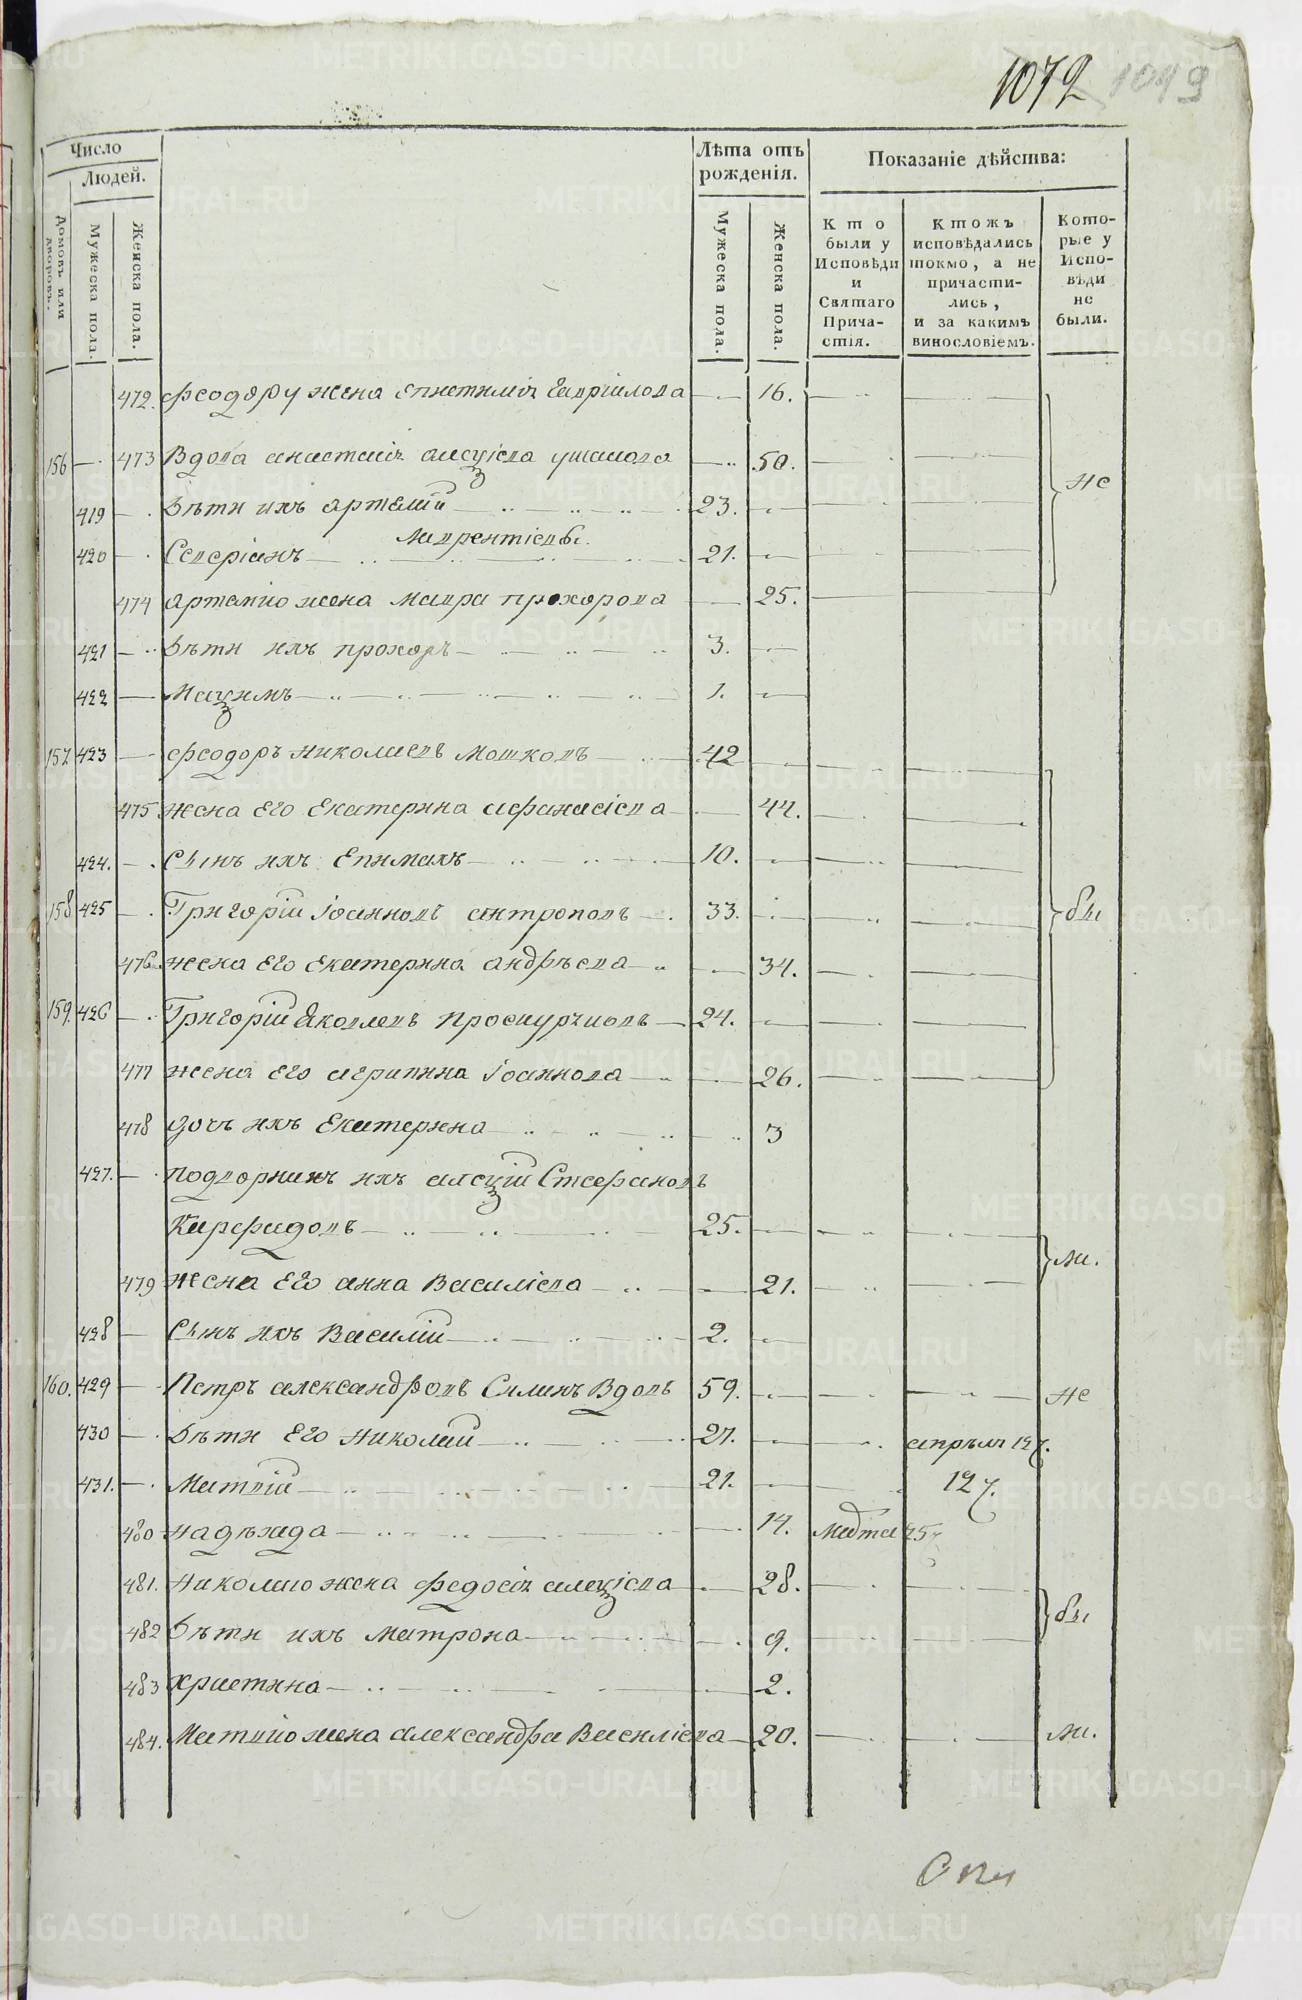 1072 1049
Число
Людей.
Домовъ или дворовъ.
Мужеска пола.
Женска пола.
Лѣта отъ рожденія.
Мужеска пола.
Женска пола.
Показаніе дѣйства:
Кто были у Исповѣди и Святаго Причастія.
Ктожъ исповѣдались токмо, а не причастились, и за какимъ винословіемъ.
Которые у Исповѣди не были.
472. Феодору жена Епистимія Гавріилова 16.
156 473 Вдова Анастасія Алезіева Ушакова 50. не
419 Дѣти ихъ Артемій 23.
Лаврентіевы
420 Северіанъ 21.
474 Артемію жена Мавра Прохорова 25.
421 Дѣти ихъ Прохоръ 3.
422 Мазимъ 1.
157 423 Феодоръ Николаевъ Мошковъ 42
475 жена Его Екатерина Афанасіева 44.
424. Сынъ ихъ Епимахъ 10.
158 425 Григорій Іоанновъ Антроповъ 33. бы
476 жена Его Екатерина Андрѣева 34.
159. 426 Григорій Яковлевъ 24.
477 жена Его Агрипина Іоаннова 26.
478 дочь ихъ Екатерина 3
427. подворникъ ихъ Алезій Стефановъ
25.
ли.
479 жена Его Анна Василіева 21.
428 Сынъ ихъ Василій 2.
160. 429 Петръ Александровъ Силинъ Вдовъ 59. не
430 Дѣти Его Николай 27. апрѣля 12
431. Матвій 21. 12
480 Надѣжда 14. 25
481. Николаю жена Федосія Алезіева 28.
482 Дѣти ихъ Матрона 9. бы
483 Христина 2.
484. Матвію жена Александра Василіева 20. ли.